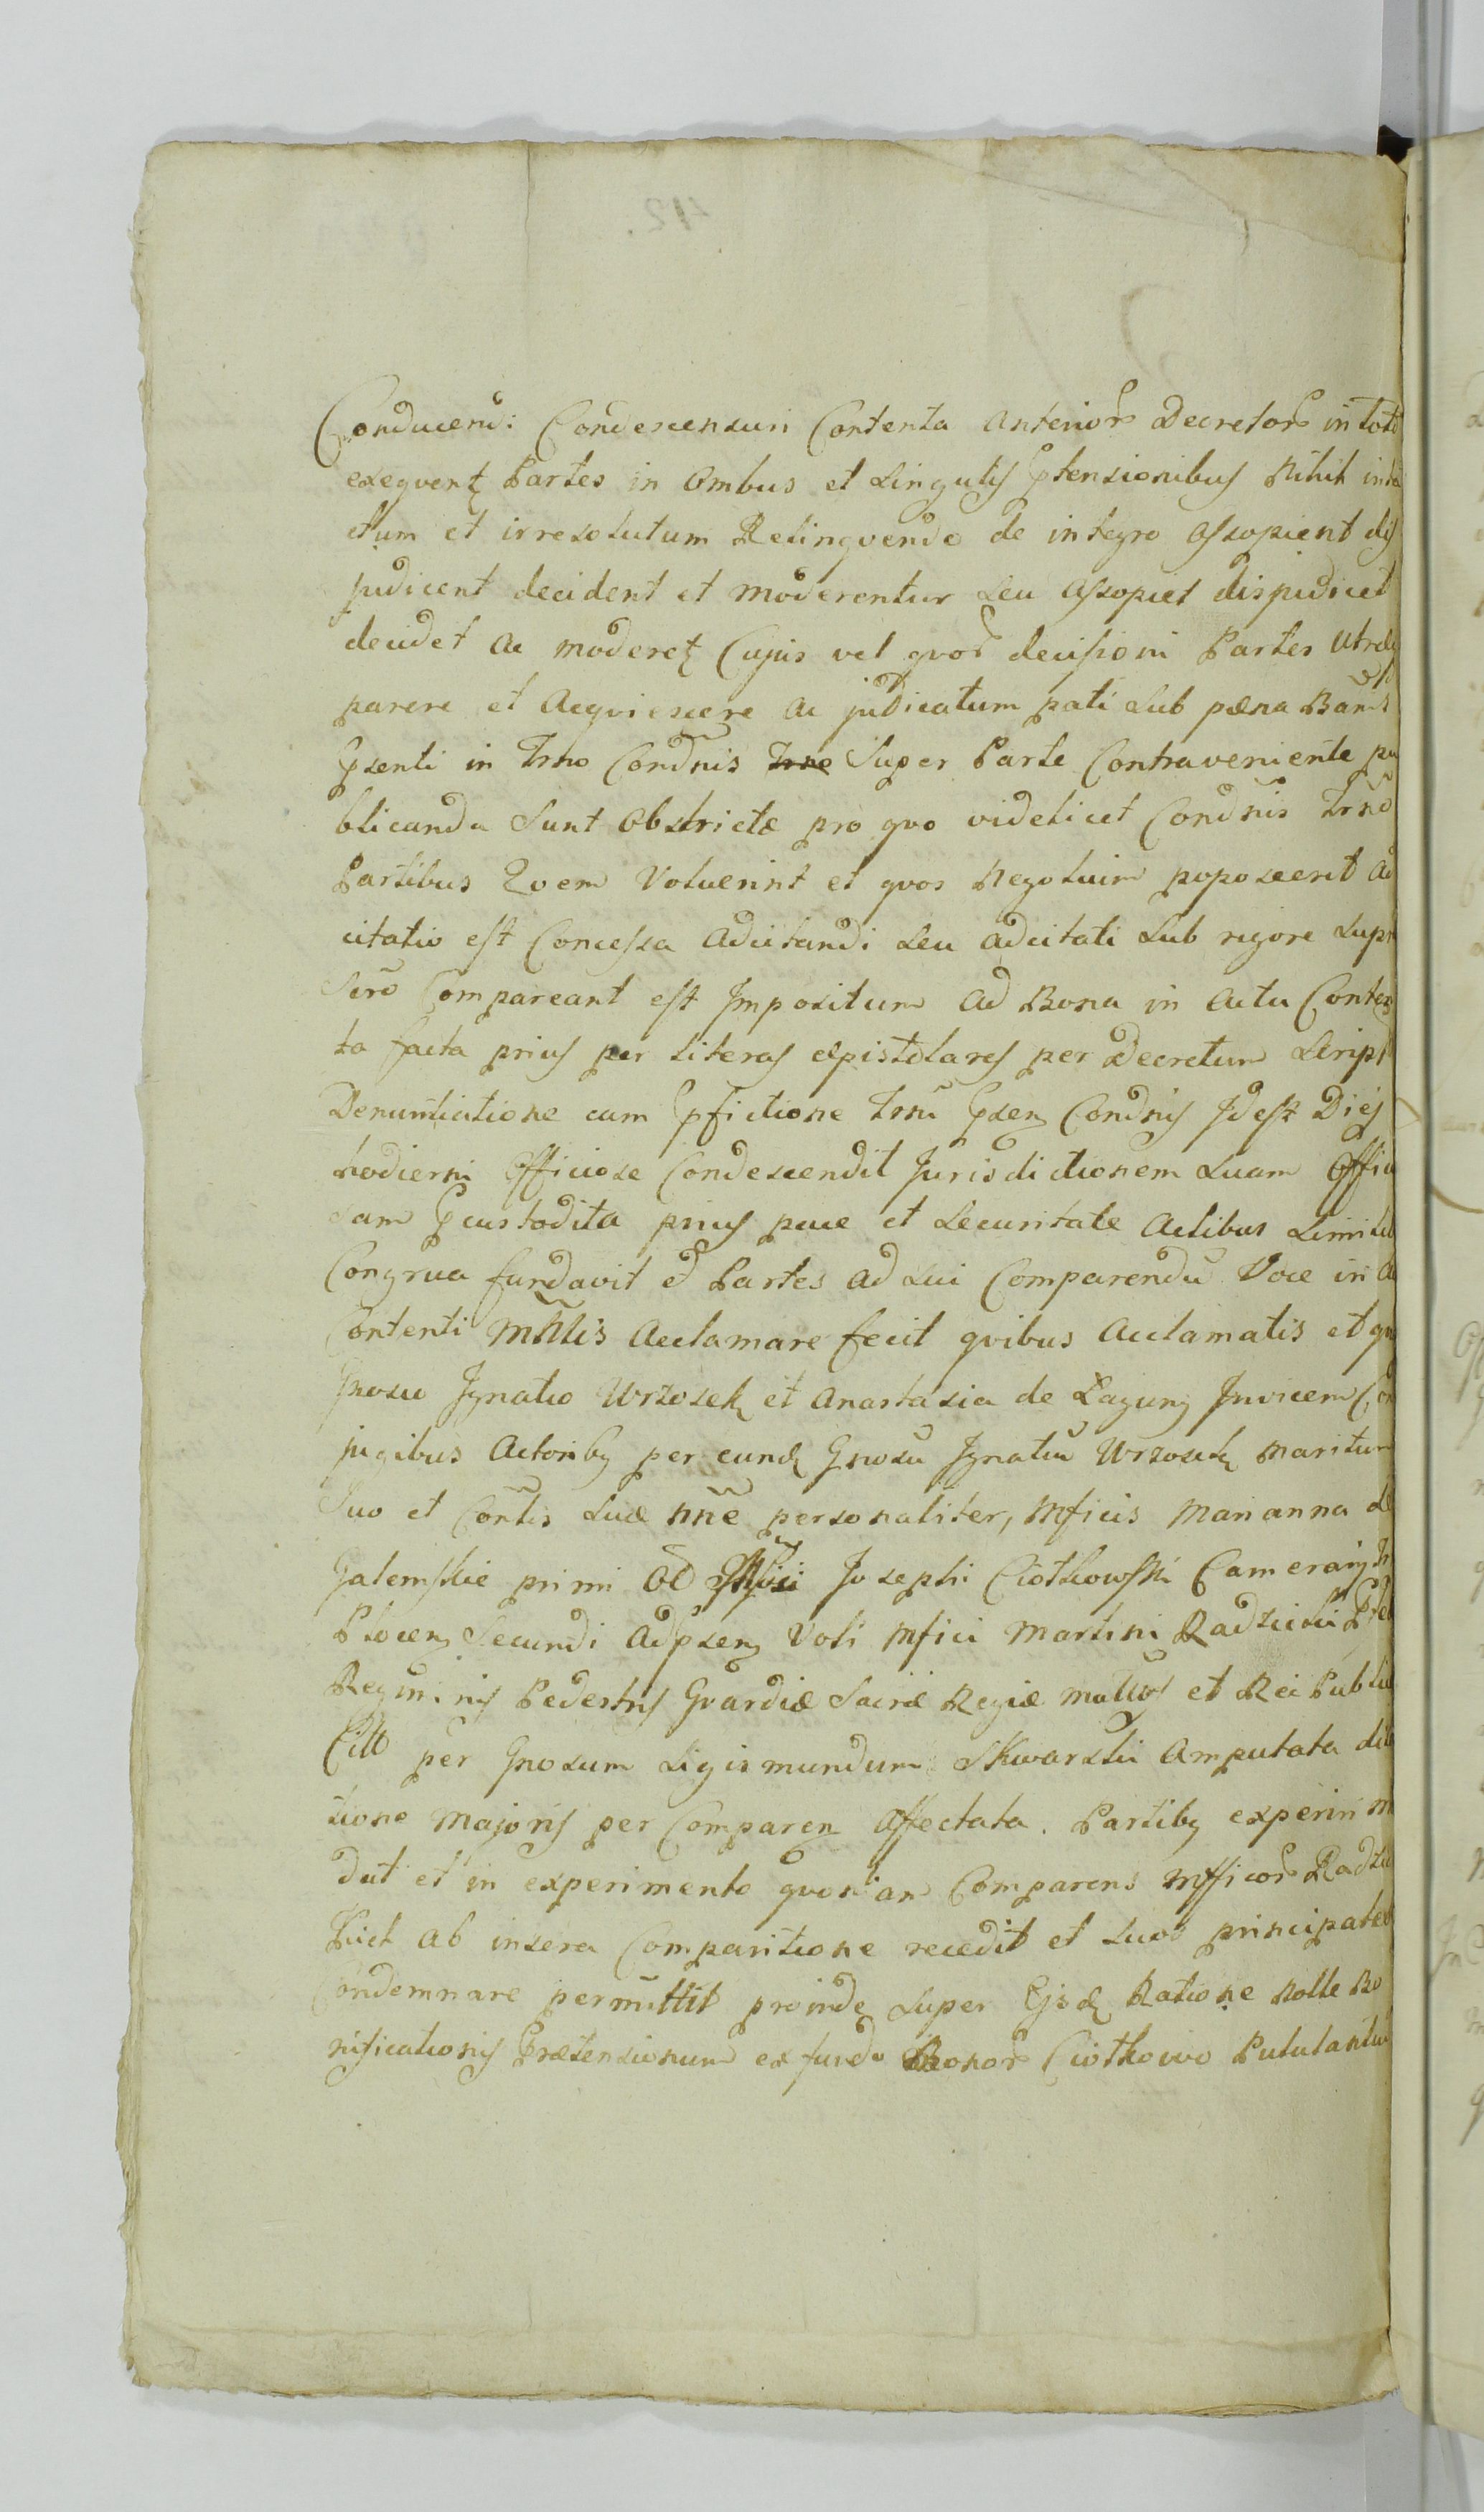 Conducend: Condescensuri Contenta Anterior Decretor in toto
exequent Partes in Ombus et Singulis Ptensionibus Nihil inta
ctum et irresolutum Relinquendo de integro Assopient dis
judicent decident et moderentur Seu Assopiet disjudicet
decidet Ac moderet Cujus vel quor decisioni Partes Utrae
parere et Acquiescere Ac judicatum pati Sub paena Banis
Psenti in Trno Condnis Trne Super Parte Contraveniente pu
blicanda Sunt Obstrictae pro quo videlicet Condnis Trno
Partibus Quem Voluerint et quos Negotium poposcerit Ad
citatio est Concessa Adcitandi Seu adcitati Sub rigore Supra
Scro Compareant est Impositum Ad Bona in Actu Conten
ta facta prius per literas epistolares per Decretum Script
Denuntiatione cum Pfictione Trni Psen Condnis Id est Diei
hodierni Officiose Condescendit Jurisdictionem Suam Offici
sam Pcustodita prius pace et Securitate Actibus Simili
Congrua fundavit et Partes ad Sui Comparendu Voce in A
Contenti Mnlis Acclamare fecit quibus Acclamatis et
Gnoso Ignatio Wrzosek et Anastasia de Laguny Invicem Con
jugibus Actoribus per eund Gnosu Ignatiu Wrzosek maritum
Suo et Contis Suae nne personaliter, Mficis Marianna de
Galemskie primi Od Josephi Ciotkowski Cameraij
Plocen Secundi Adpsen Voti Mfici Martini Radzicki
Regiminis Pedestris Gvardiae Sacrae Regiae Mattis et Rei Publicae
Citt per Gnosum Sigismundum Skwarski Amputata dila
tione Majoris per Comparen Affectata. Partibus experiri
dut et in experimento quoniam Comparens Mfficor Radzic
kich ab insera Comparitione recedit et Suos principales
Condemnare permittit proinde Super Ejsd Ratione Nolle Bo
nificationis Praetensionum ex fundo Bonor Ciotkowo Pululantiu